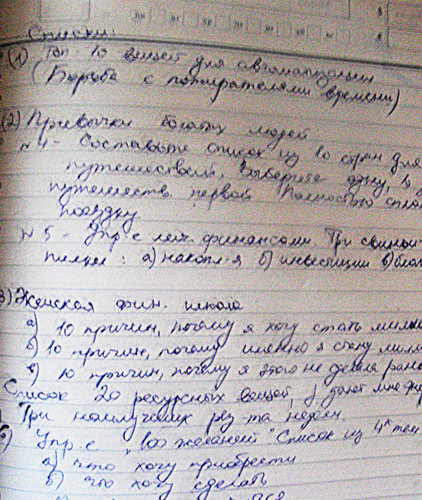 Списки:
(1) Топ-10 вещей для автоматизации
(Борьба с пожирателями времени)
(2) Привычки богатых людей.
N4- Составьте список из 10 стран для
путешествий. Выберите одну, в
путешеств первой. Полностью спла
поездку
N5 - Упр-е с лич. финансами. Три свиньи-
пилки: а) накопл-я б) инвестиции в) благ
3) Женская фин. школа
а) 10 причин, почему я хочу стать милли
б) 10 причин, почему именно я стану милли
в) 10 причин, почему я этого не делала рань
Список 20 ресурсных вещей
Три наилучших рез-та недели
Упр-е "100 желаний" Список из 4х тем
а) что хочу приобрести
б) что хочу сделать